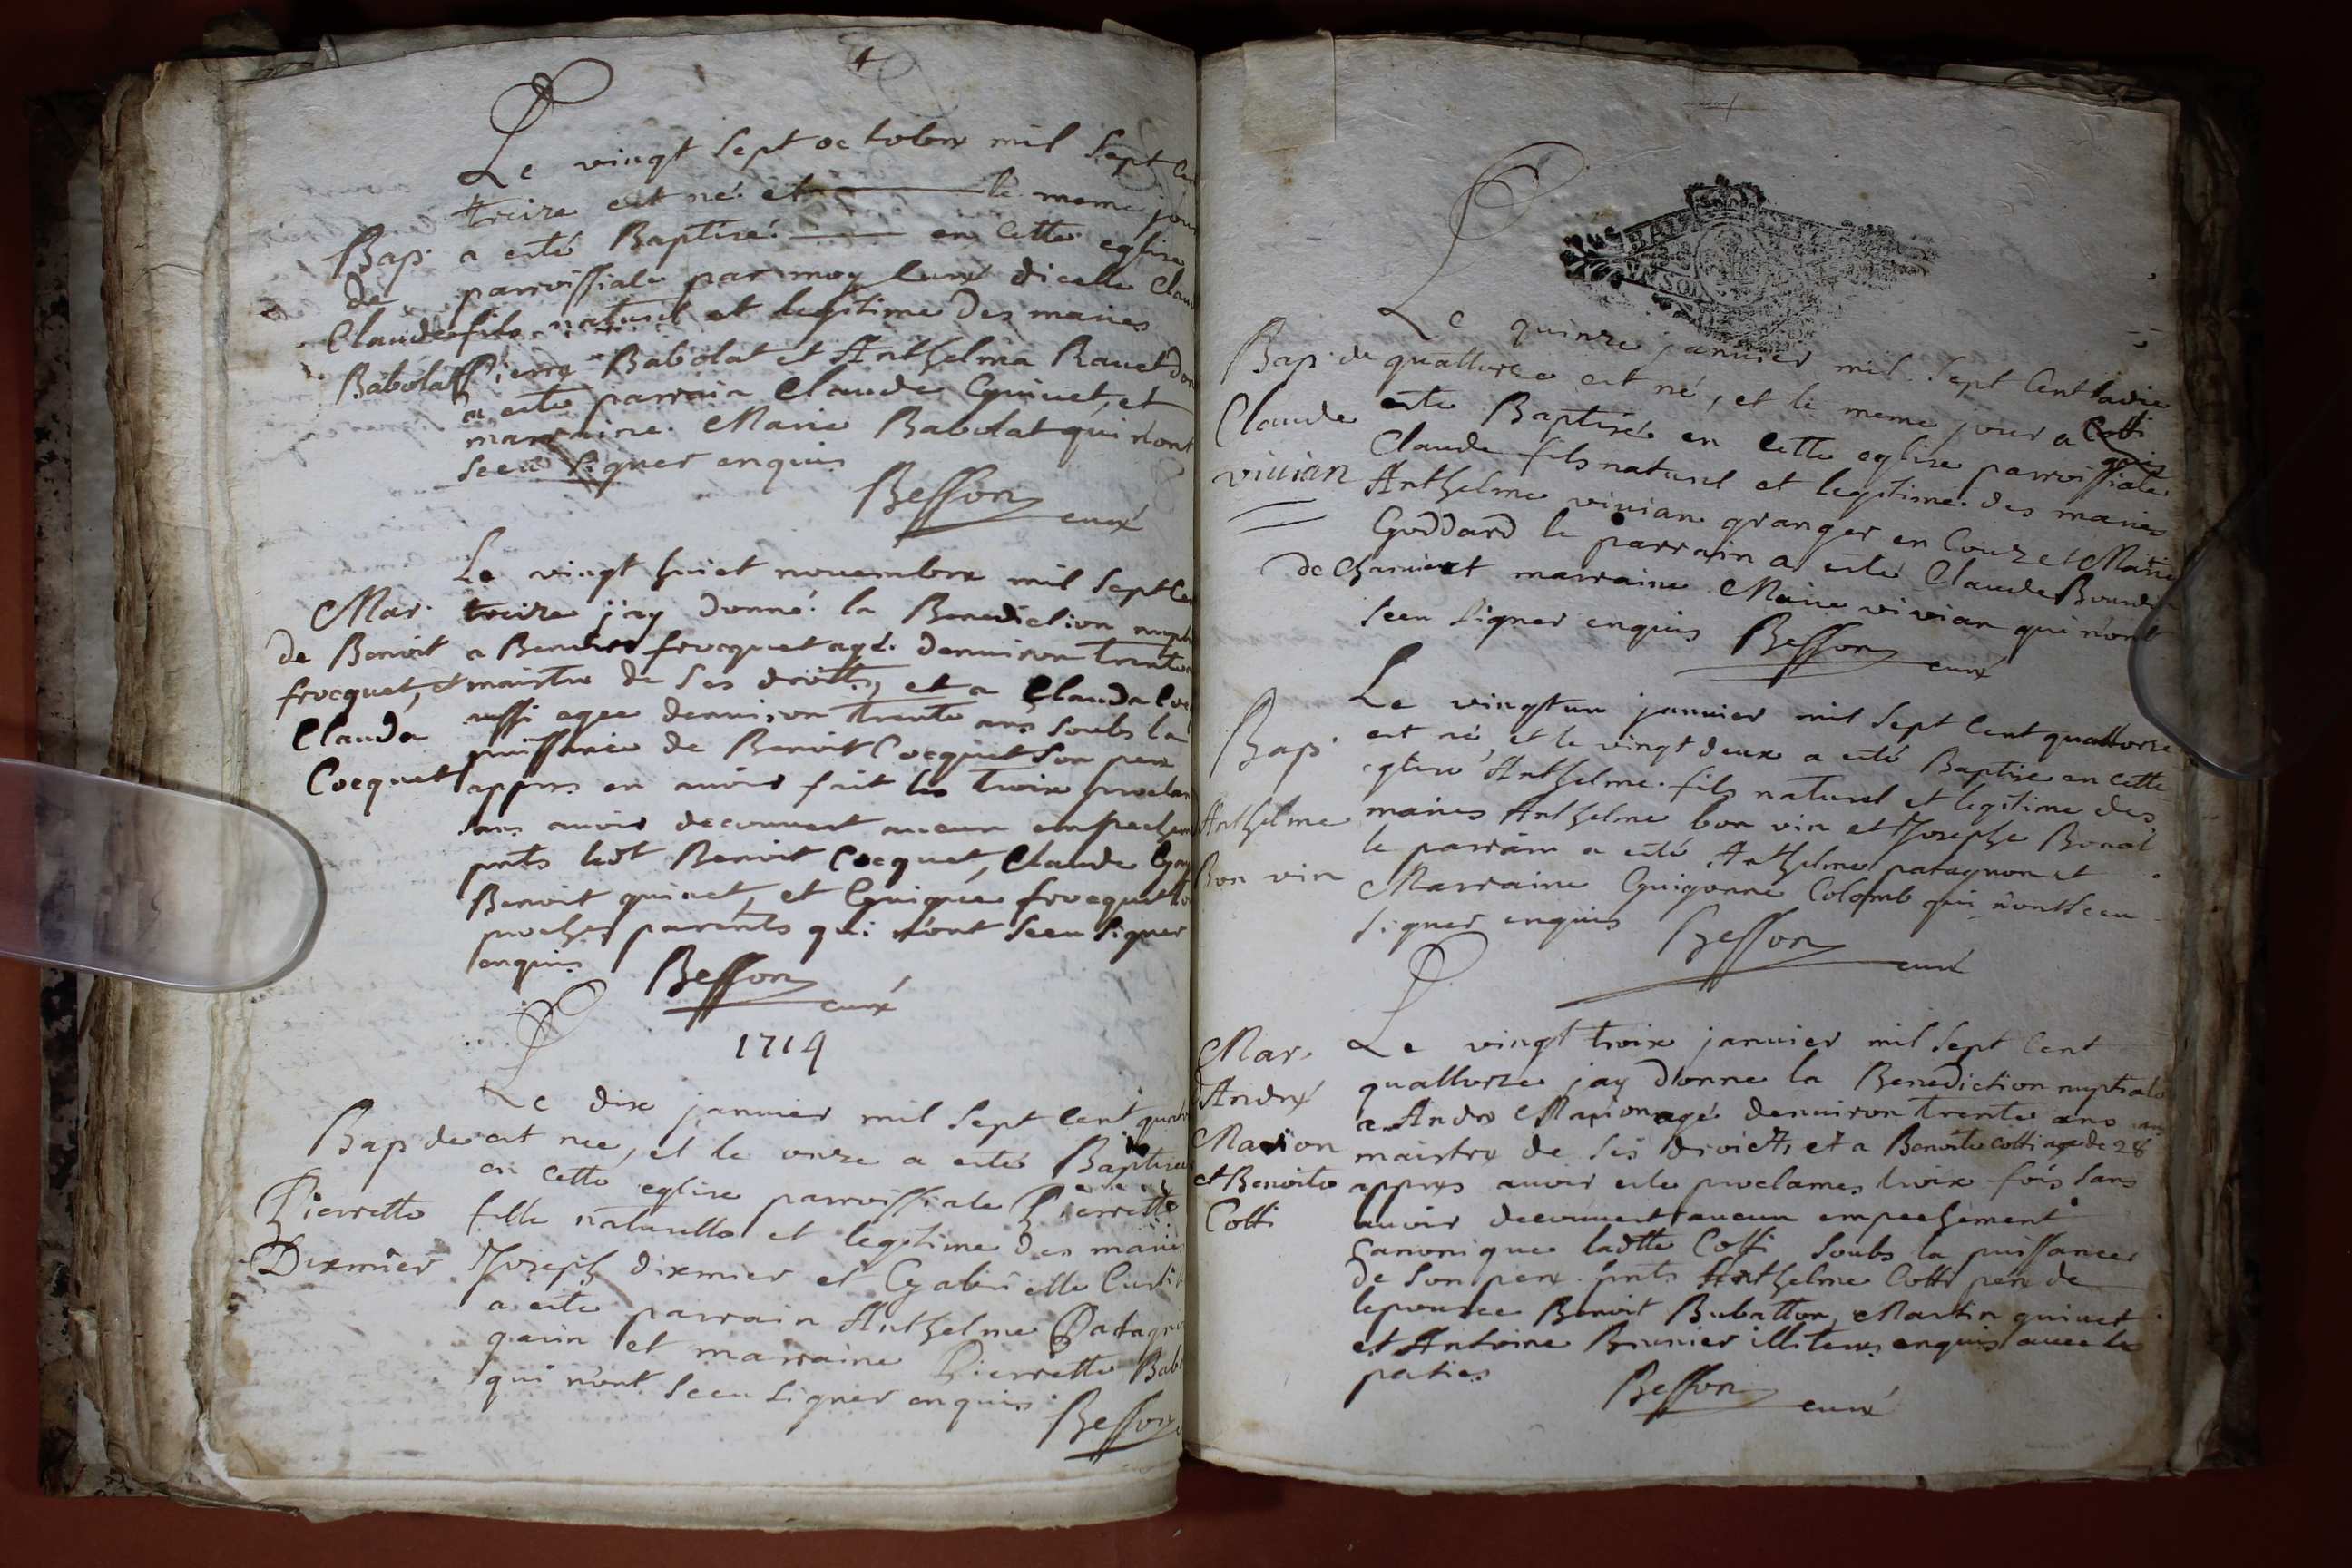 Le vingt sept octobre mil sept
treize est né et le meme jour
Bap. a esté Baptizé en cette eglise
de parroissiale par moy curé dicelle
Claude fils naturel et legitime des maries
Babolat Pierre Babolat et Anthelma Ravet
a esté parrain Claude Guinet, et
marraine Marie Babolat qui n'ont
sceu signer enquis
Besson curé
Le vingt huict novembre mil sept
Mar. treize j'ay donné la Benediction
de Benoit a Benoit frocquet agé denuiron trente
frocquet, et maistre de ses droitts, et a Clauda
Clauda aussi agee denuiron trente ans soubs la
Cocquet puissance de Benoit Cocquet son pere
appres en auoir fait les troix
sans auoir decouuert aucun
pnts ledt Benoit Cocquet, Claude
Benoit quinet, et Guigues frocquet
proches parents qui n'ont sceu signer
enquis Besson curé
1714
Le dix januier mil sept cent
Bap de est nee, et le onze a esté Baptisee
en cette eglise parroissiale Pierrette
Pierrette fille naturelle et legitime des maries
Dixmier Joseph dixmier et Gabrielle
a esté parrain Anthelme
et marraine Pierrette
qui n'ont sceu signer enquis
Besson
Le quinze januier mil sept cent
Bap. de quattorze est né, et le meme jour a
Claude esté Baptisé en cette eglise parroissiale
vivian Claude fils naturel et legitime des maries
Anthelme vivian granger en Couz et Marie
Goddard le parrain a esté Claude
et marraine Marie vivian qui n'ont
sceu signer enquis Besson curé
Le vingt un januier mil sept cent quattorze
Bap. est né, et le vingt deux a esté Baptise en cette
eglise Anthelme fils naturel et legitime des
Anthelme maries Anthelme bon vin et Josephe
Bon vin le parrain a esté Anthelme patagnon et
Marraine Guigonne Colomb qui n'ont sceu
signer enquis Besson curé
Mar. Le vingt troix januier mil sept cent
André quattorze jay donne la Benediction nuptiale
Marion a Andre Marion agé denuiron trente ans
et Benoite maistre de ses droicts et a Benoite Cotti age de 28
Cotti appres auoir este proclames troix fois sans
auoir decouuert aucun empechement
Canonique ladtte Cotti soubs la puissance
de son pere pnts Anthelme Cotti pere de
lepousee Benoit Martin quinet
et Antoine Brunier illiteres enquis auec les
parties Besson curé